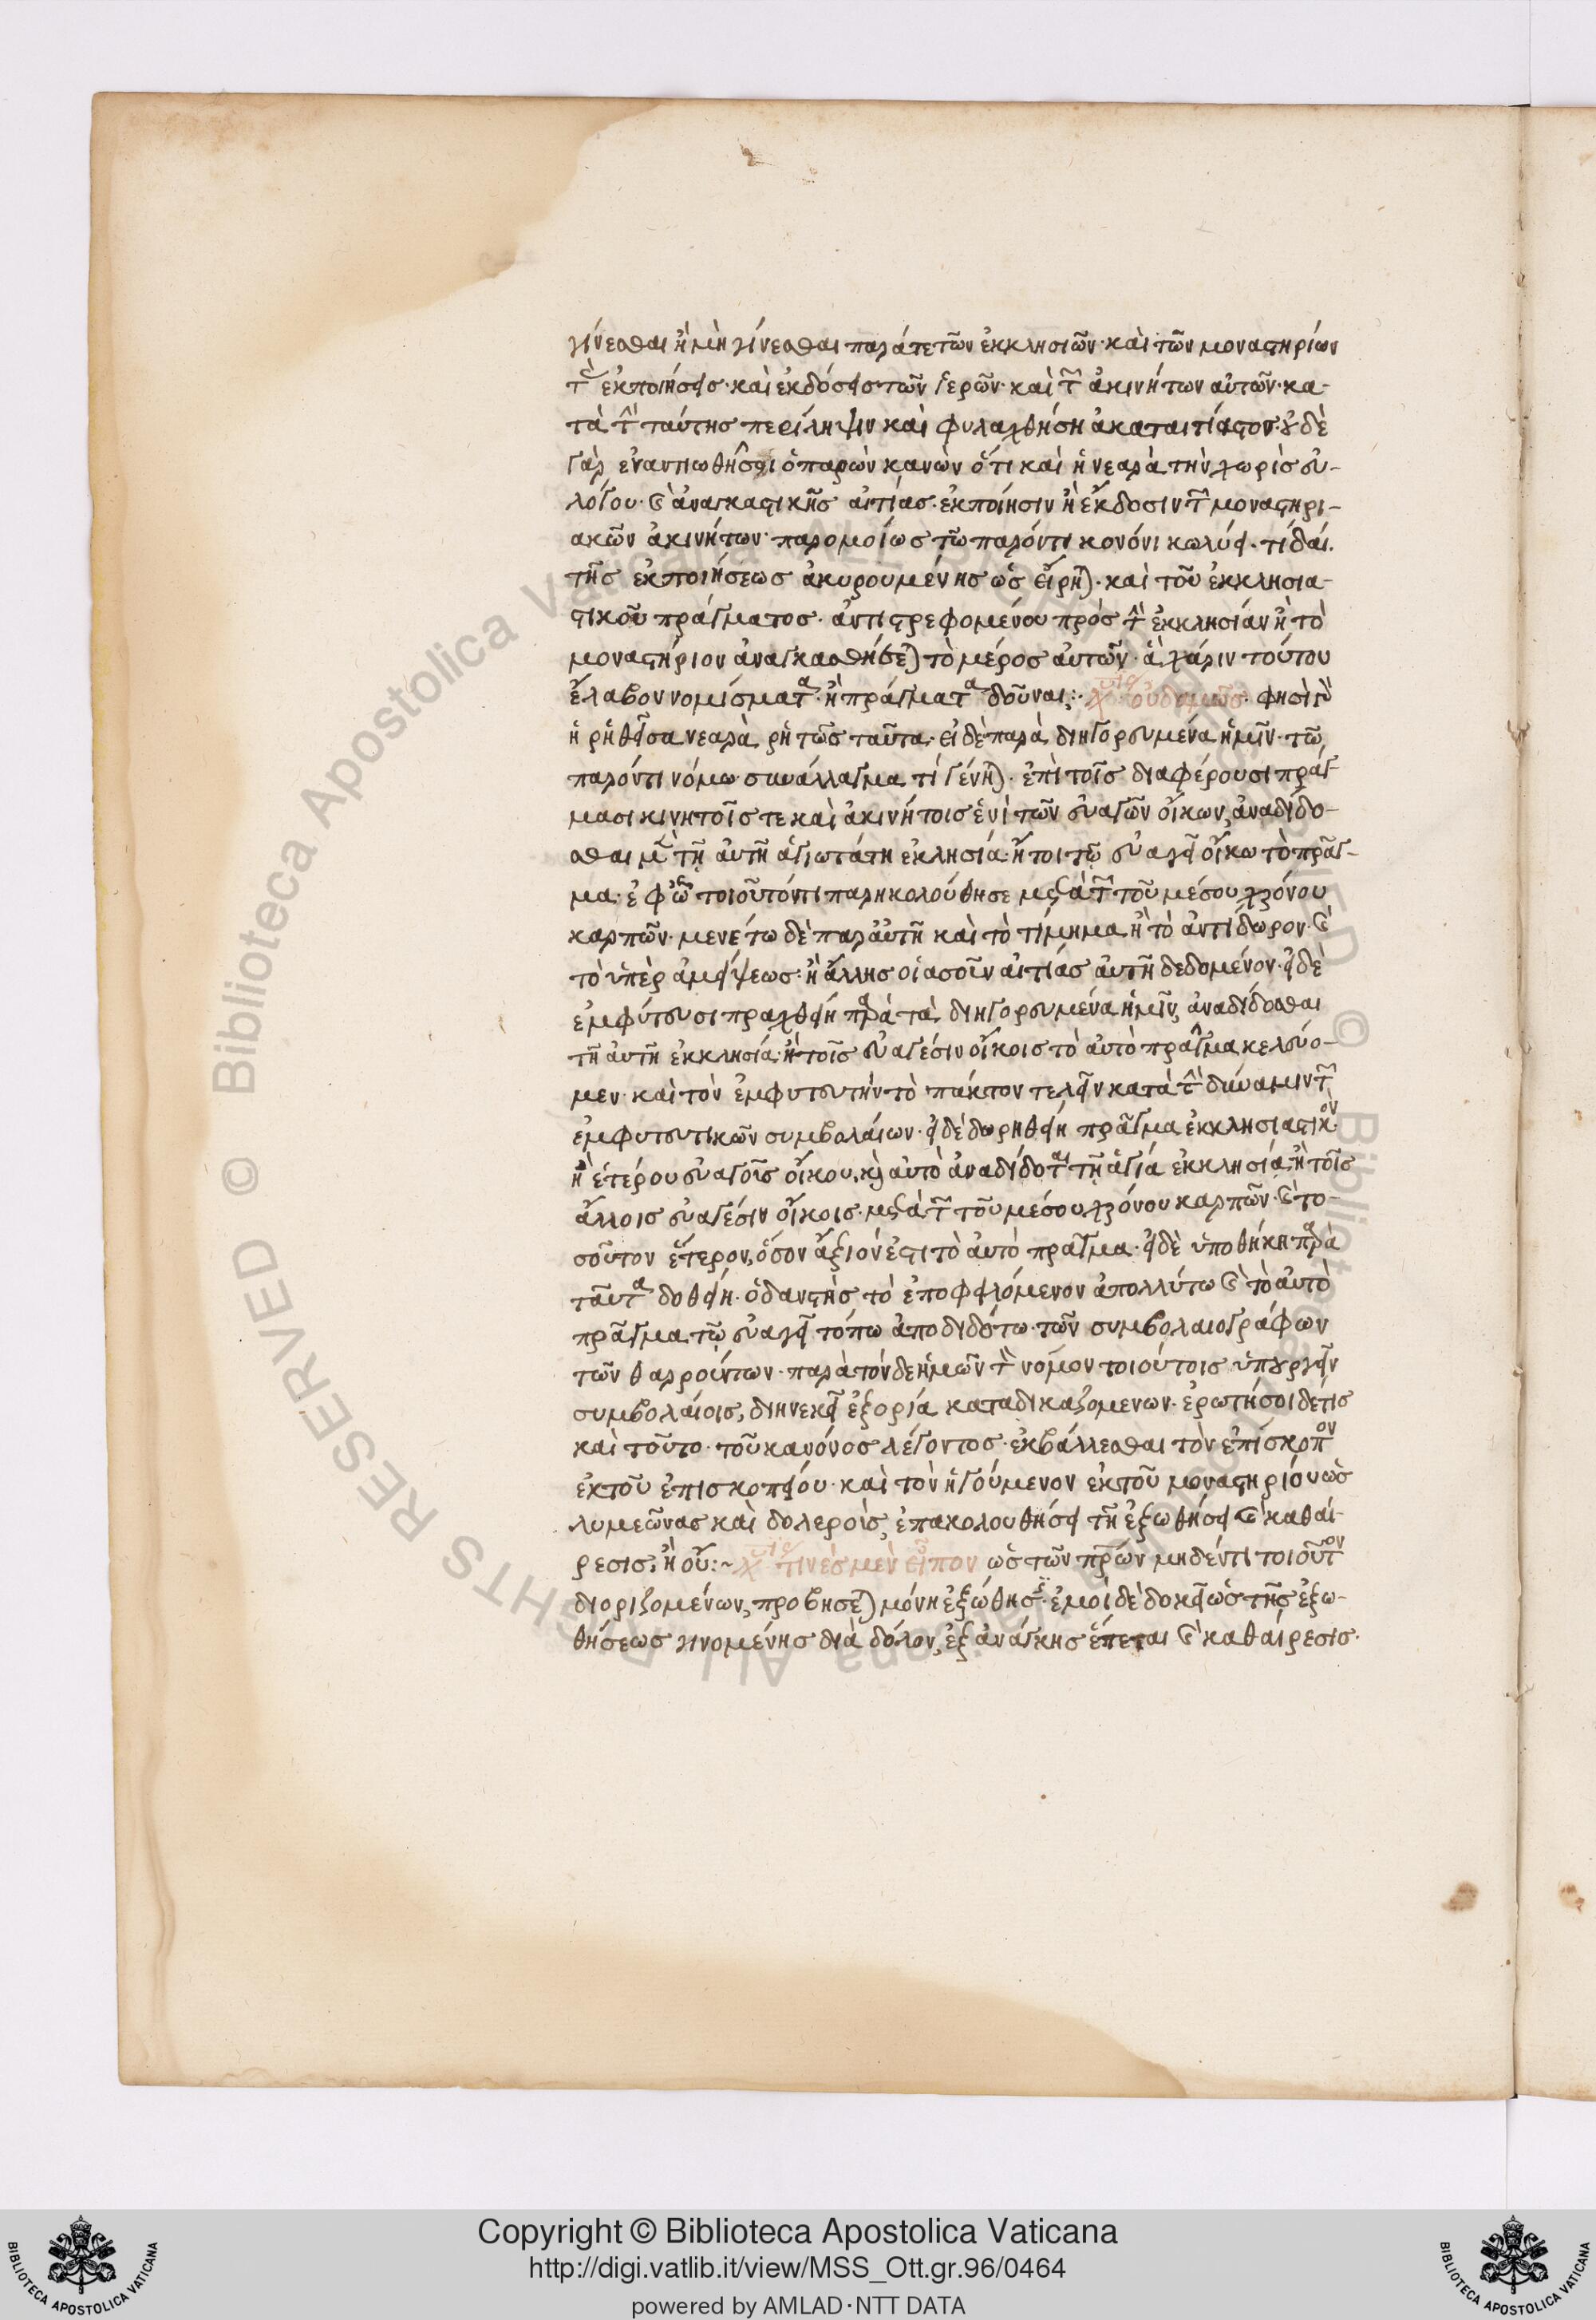 γίνεσθαι ἢ μὴ γίνεσθαι παρά τε τῶν ἐκκλησιῶν· καὶ τῶν μοναστηρίων
τὰς ἐκποιήσεις· καὶ ἐκδόσεις τῶν ἱερῶν· καὶ τῶν ἀκινήτων αὐτῶν· κα-
τὰ τὴν ταύτης περίληψιν καὶ φυλαχθήση ἀκαταιτίαστον· οὐδὲ
γὰρ ἐναντιωθήσεται ὁ παρὼν κανὼν ὅτι καὶ ἡ νεαρὰ τὴν χωρὶς εὐ-
λόγου· καὶ ἀναγκαστικῆς αἰτίας· ἐκποίησιν ἢ ἔκδοσιν τῶν μοναστηρι-
ακῶν ἀκινήτων· παρομοίως τῶ παρόντι κονόνι κωλύει· τί δαί.
τῆς ἐκποιήσεως ἀκυρουμένης ὡς εἴρηται· καὶ τοῦ ἐκκλησια-
στικοῦ πράγματος· ἀντιστρεφομένου πρὸς τὴν ἐκκλησίαν ἢ τὸ
μοναστήριον ἀναγκασθήσεται τὸ μέρος αὐτῶν· ἃ χάριν τούτου
ἔλαβον νομίσματα· ἢ πράγματα δοῦναι;· οὐδαμῶς· φησὶ γὰρ
ἡ ῥηθεῖσα νεαρὰ ῥητῶς ταῦτα· εἰ δὲ παρὰ διηγορευμένα ἡμῖν· τῶ
παρόντι νόμω συνάλλαγμα τί γένηται· ἐπὶ τοῖς διαφέρουσι πράγ-
μασι κινητοῖς τε καὶ ἀκινήτοις ἑνὶ τῶν εὐαγῶν οἴκων, ἀναδίδο-
σθαι μὲν τῆ αὐτῆ ἁγιωτάτη ἐκλησία· ἤτοι τῶ εὐαγεῖ οἴκω τὸ πρᾶγ-
μα· ἐφ' ὧ τοιοῦτόν τι παρηκολούθησε μετὰ τῶν τοῦ μέσου χρόνου
καρπῶν· μενέτω δὲ παρ' αὐτῆ καὶ τὸ τίμημα ἢ τὸ ἀντίδωρον· καὶ
τὸ ὑπὲρ ἀμείψεως· ἢ ἄλλης οἱασοῦν αἰτίας αὐτῆ δεδομένον· εἰ δὲ
ἐμφύτευσι πραχθείη παρὰ τὰ διηγορευμένα ἡμῖν, ἀναδίδοσθαι
τῆ αὐτῆ ἐκκλησία· ἢ τοῖς εὐαγέσιν οἴκοις τὸ αὐτὸ πρᾶγμα κελεύο-
μεν· καὶ τὸν ἐμφυτευτὴν τὸ πάκτον τελεῖν κατὰ τὴν δύναμιν τῶν
ἐμφυτευτικῶν συμβολαίων· εἰ δὲ δωρηθείη πρᾶγμα ἐκκλησιαστικὸν
ἢ ἑτέρου εὐαγοῦς οἴκου, καὶ αὐτὸ ἀναδίδοται τῆ ἁγία ἐκκλησία, ἢ τοῖς
ἄλλοις εὐαγέσιν οἴκοις· μετὰ τῶν τοῦ μέσου χρόνου καρπῶν· καὶ το-
σοῦτον ἕτερον, ὅσον ἄξιόν ἐστι τὸ αὐτὸ πρᾶγμα· εἰ δὲ ὑποθήκη παρὰ
ταῦτα δοθείη· ὁ δανειστὴς τὸ ἐποφειλόμενον ἀπολλύτω καὶ τὸ αὐτὸ
πρᾶγμα τῶ εὐαγεῖ τόπω ἀποδιδότω· τῶν συμβολαιογράφων
τῶν θαρρούντων· παρὰ τόνδε ἡμῶν τὸν νόμον τοιούτοις ὑπουργεῖν
συμβολαίοις, διηνεκεῖ ἐξορία καταδικαζομενων· ἐρωτήσοι δέ τις
καὶ τοῦτο· τοῦ κανόνος λέγοντος· ἐκβάλλεσθαι τὸν ἐπίσκοπον
ἐκ τοῦ ἐπισκοπείου· καὶ τὸν ἡγούμενον ἐκ τοῦ μοναστηρίου ὡς
λυμεῶνας καὶ δολεροὺς, ἐπακολουθήσει τῆ ἐξωθήσει καὶ καθαί-
ρεσις, ἢ οὔ:~ τινὲς μὲν εἶπον ὡς τῶν πατέρων μηδέν τι τοιοῦτον
διοριζομένων, προβήσεται μόνη ἐξώθησις· ἐμοὶ δὲ δοκεῖ ὡς τῆς ἐξω-
θήσεως γινομένης διὰ δόλον, ἐξ ἀνάγκης ἕπεται καὶ καθαίρεσις·
Copyright © Biblioteca Apostolica Vaticana
http://digi.vatlib.it/view/MSS_Ott.gr.96/0464
powered by AMLAD·NTT DATA